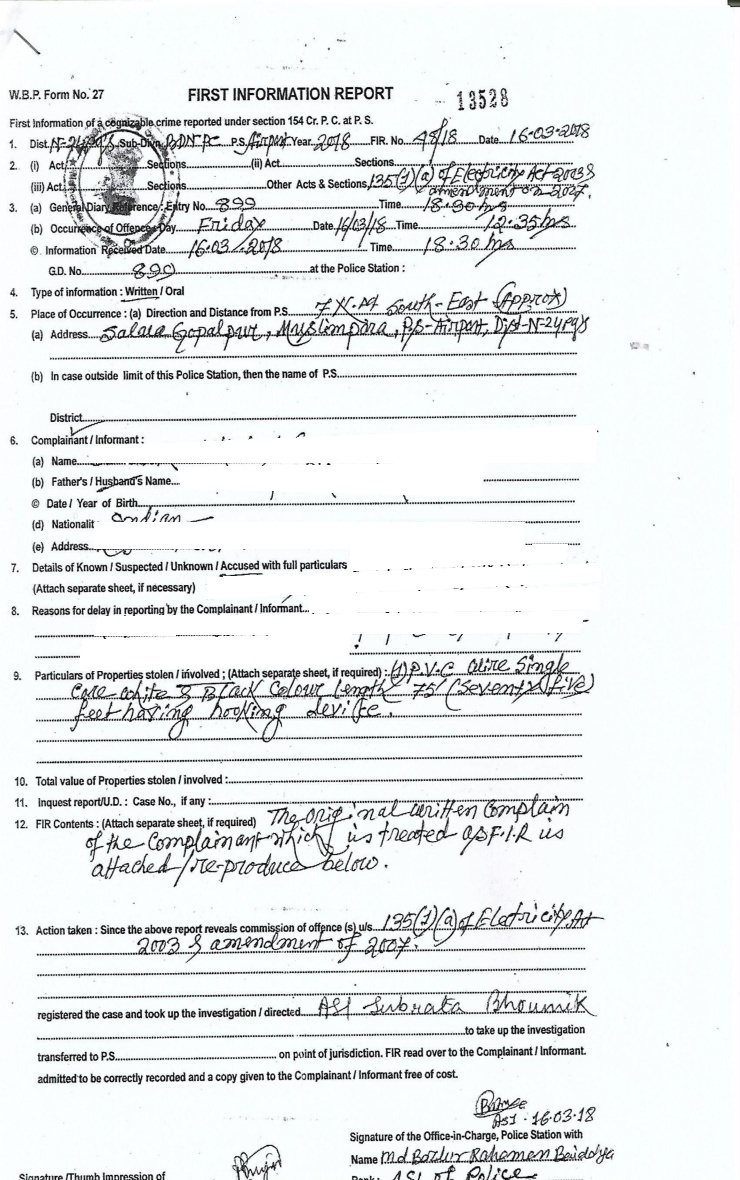 W.B.P. Form No. 27 FIRST INFORMATION REPORT 13528
First Information of a cognizable crime reported under section 154 Cr. P. C. at P. S.
1. Dist. N-24Pgs Sub-Divn. BDN P.S. Airport Year 2018 FIR. No. 48/18 Date 16-03-2018
2. (i) Act Sections (ii) Act Sections
(iii) Act Sections Other Acts & Sections 135(1)(a) of Electricity Act 2003 &
amendment on 2007.
3. (a) General Diary Reference : Entry No. 899 Time 18:30 hrs
(b) Occurrence of Offence Day Friday Date 16/03/18 Time 12:35 hrs
© Information Received Date 16.03/2018 Time 18:30 hrs
G.D. No. 890 at the Police Station :
4. Type of information : Written / Oral
5. Place of Occurrence : (a) Direction and Distance from P.S. 7 K.M South-East (Approx)
(a) Address Salua Gopalpur, Muslimpara, P.S-Airport, Dist-N-24Pgs
(b) In case outside limit of this Police Station, then the name of P.S.
District
6. Complainant / Informant :
(a) Name
(b) Father's / Husband's Name
© Date / Year of Birth
(d) Nationalit Indian
(e) Address
7. Details of Known / Suspected / Unknown / Accused with full particulars
(Attach separate sheet, if necessary)
8. Reasons for delay in reporting by the Complainant / Informant
9. Particulars of Properties stolen / involved ; (Attach separate sheet, if required) : (1) P.V.C wire Single
Core white & Black Colour length 75 (Seventy five)
feet having hooking device.
10. Total value of Properties stolen / involved :
11. Inquest report/U.D. : Case No., if any :
12. FIR Contents : (Attach separate sheet, if required) The original written Complain
of the Complainant which is treated as F.I.R is
attached / re-produce below.
13. Action taken : Since the above report reveals commission of offence (s) u/s 135(1)(a) of Electricity Act
2003 & amendment of 2007.
registered the case and took up the investigation / directed ASI Subrata Bhoumik
to take up the investigation
transferred to P.S. on point of jurisdiction. FIR read over to the Complainant / Informant.
admitted to be correctly recorded and a copy given to the Complainant / Informant free of cost.
ASI - 16-03-18
Signature of the Office-in-Charge, Police Station with
Name Md Bazlur Rahaman Baiddya
Signature /Thumb Impression of ASI of Police